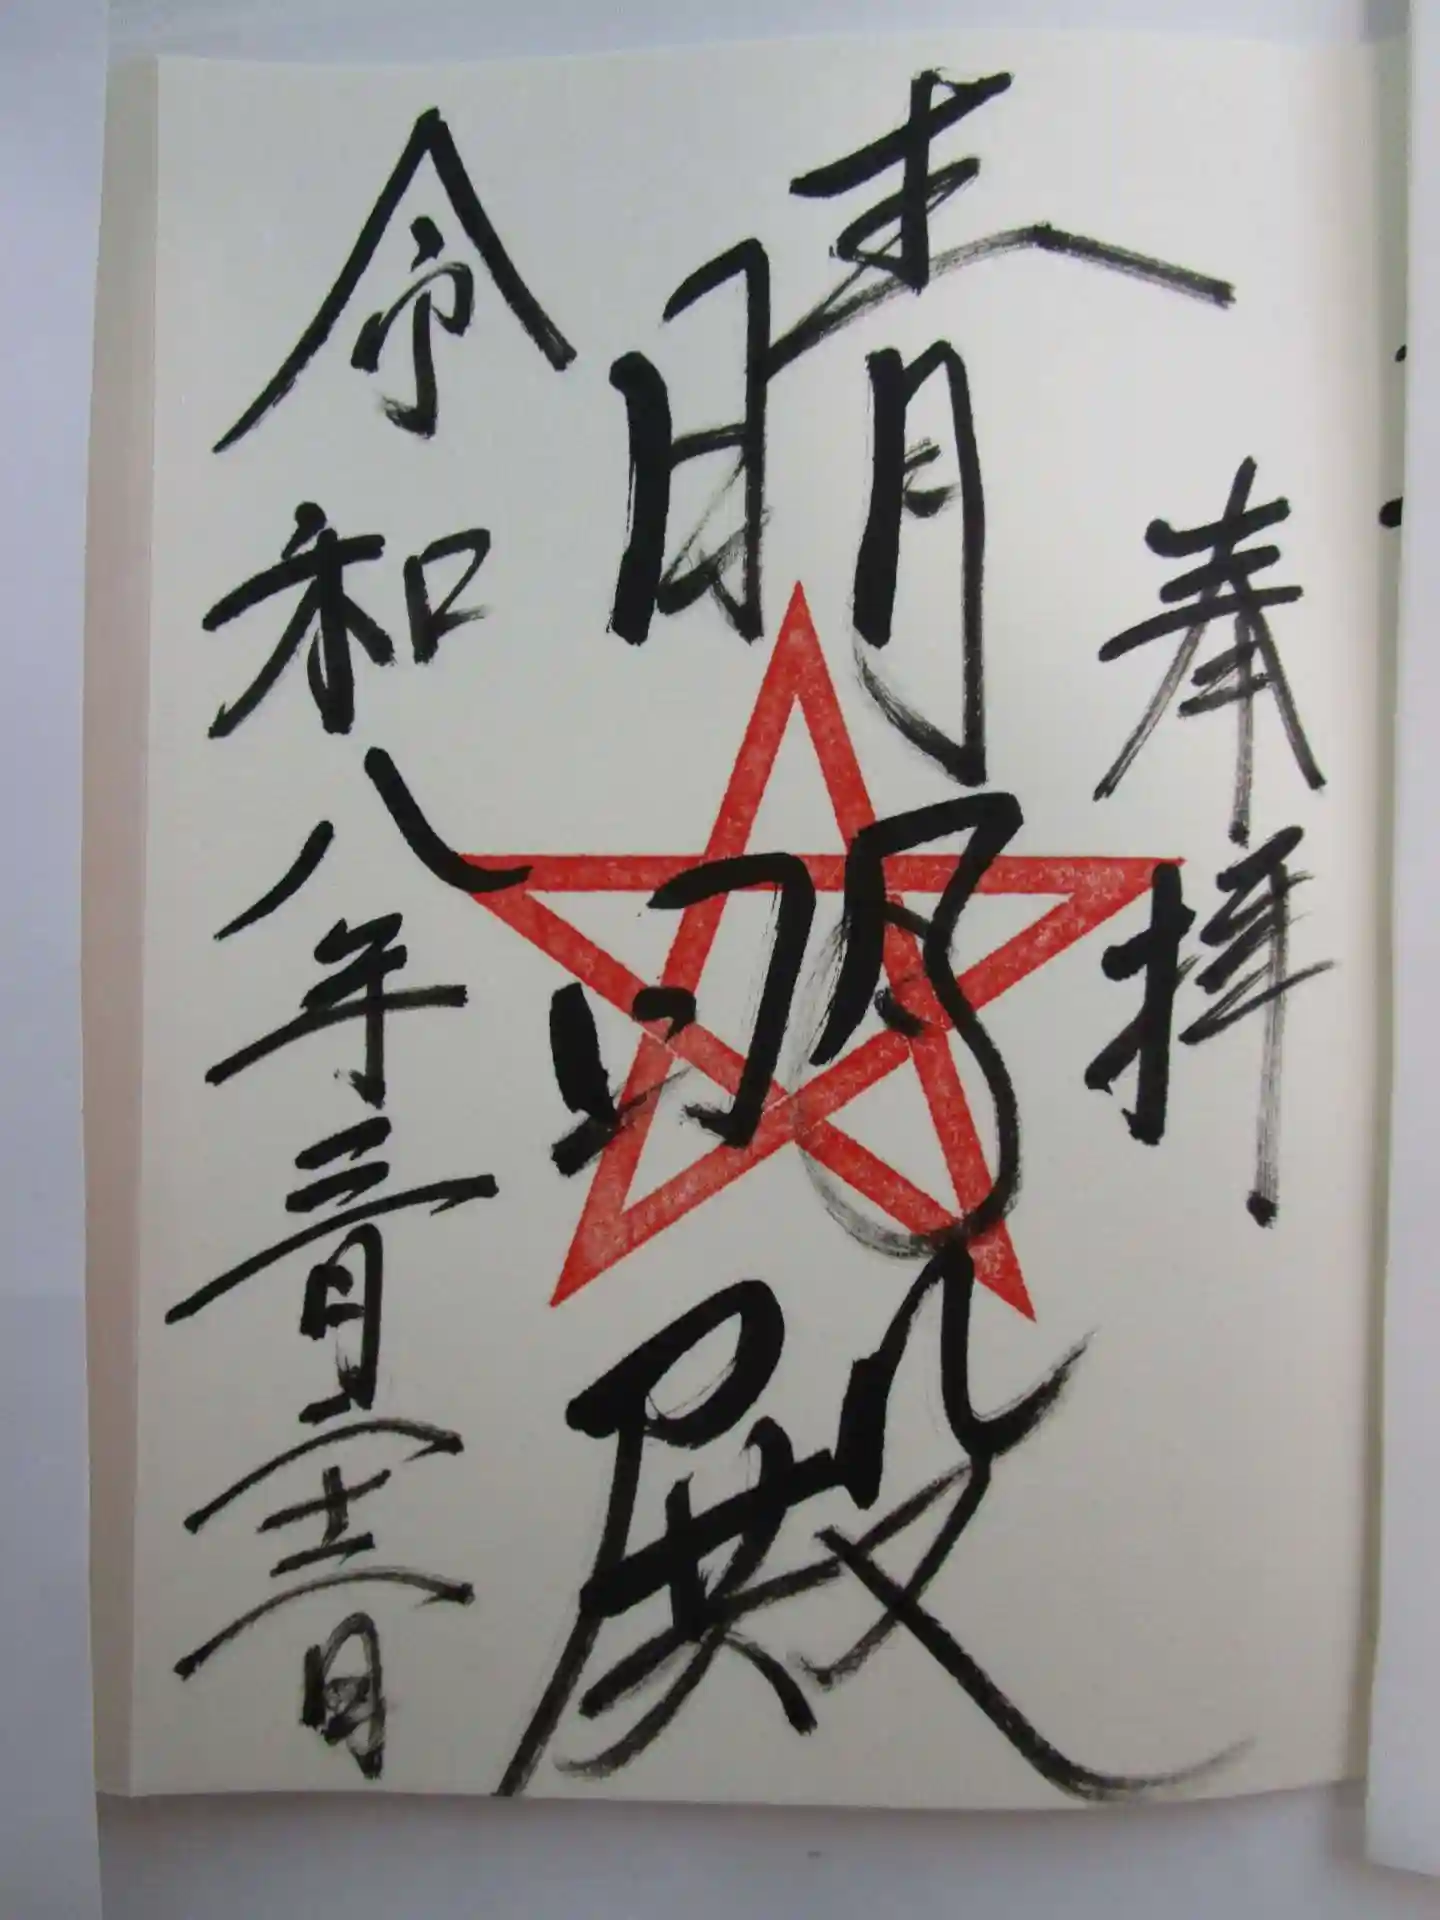 奉拝
晴明殿
令和八年三月二十二日